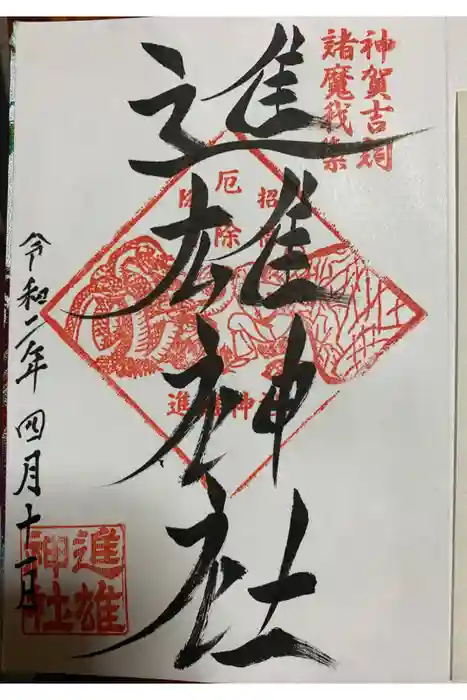 神賀吉詞
諸魔我祟
進雄神社
厄除
招福
進雄神社
進雄
神社
令和二年 四月十一日